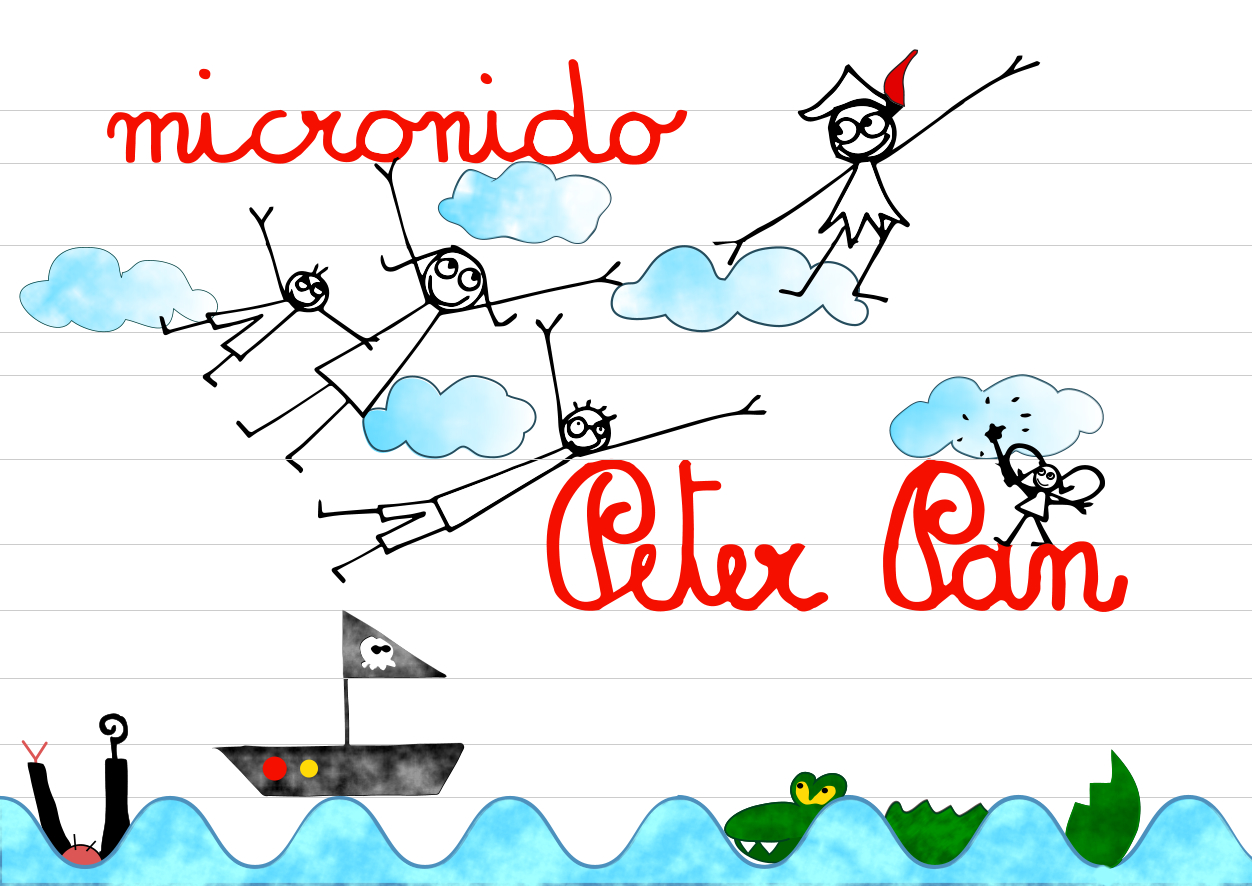 micronido
Peter Pan